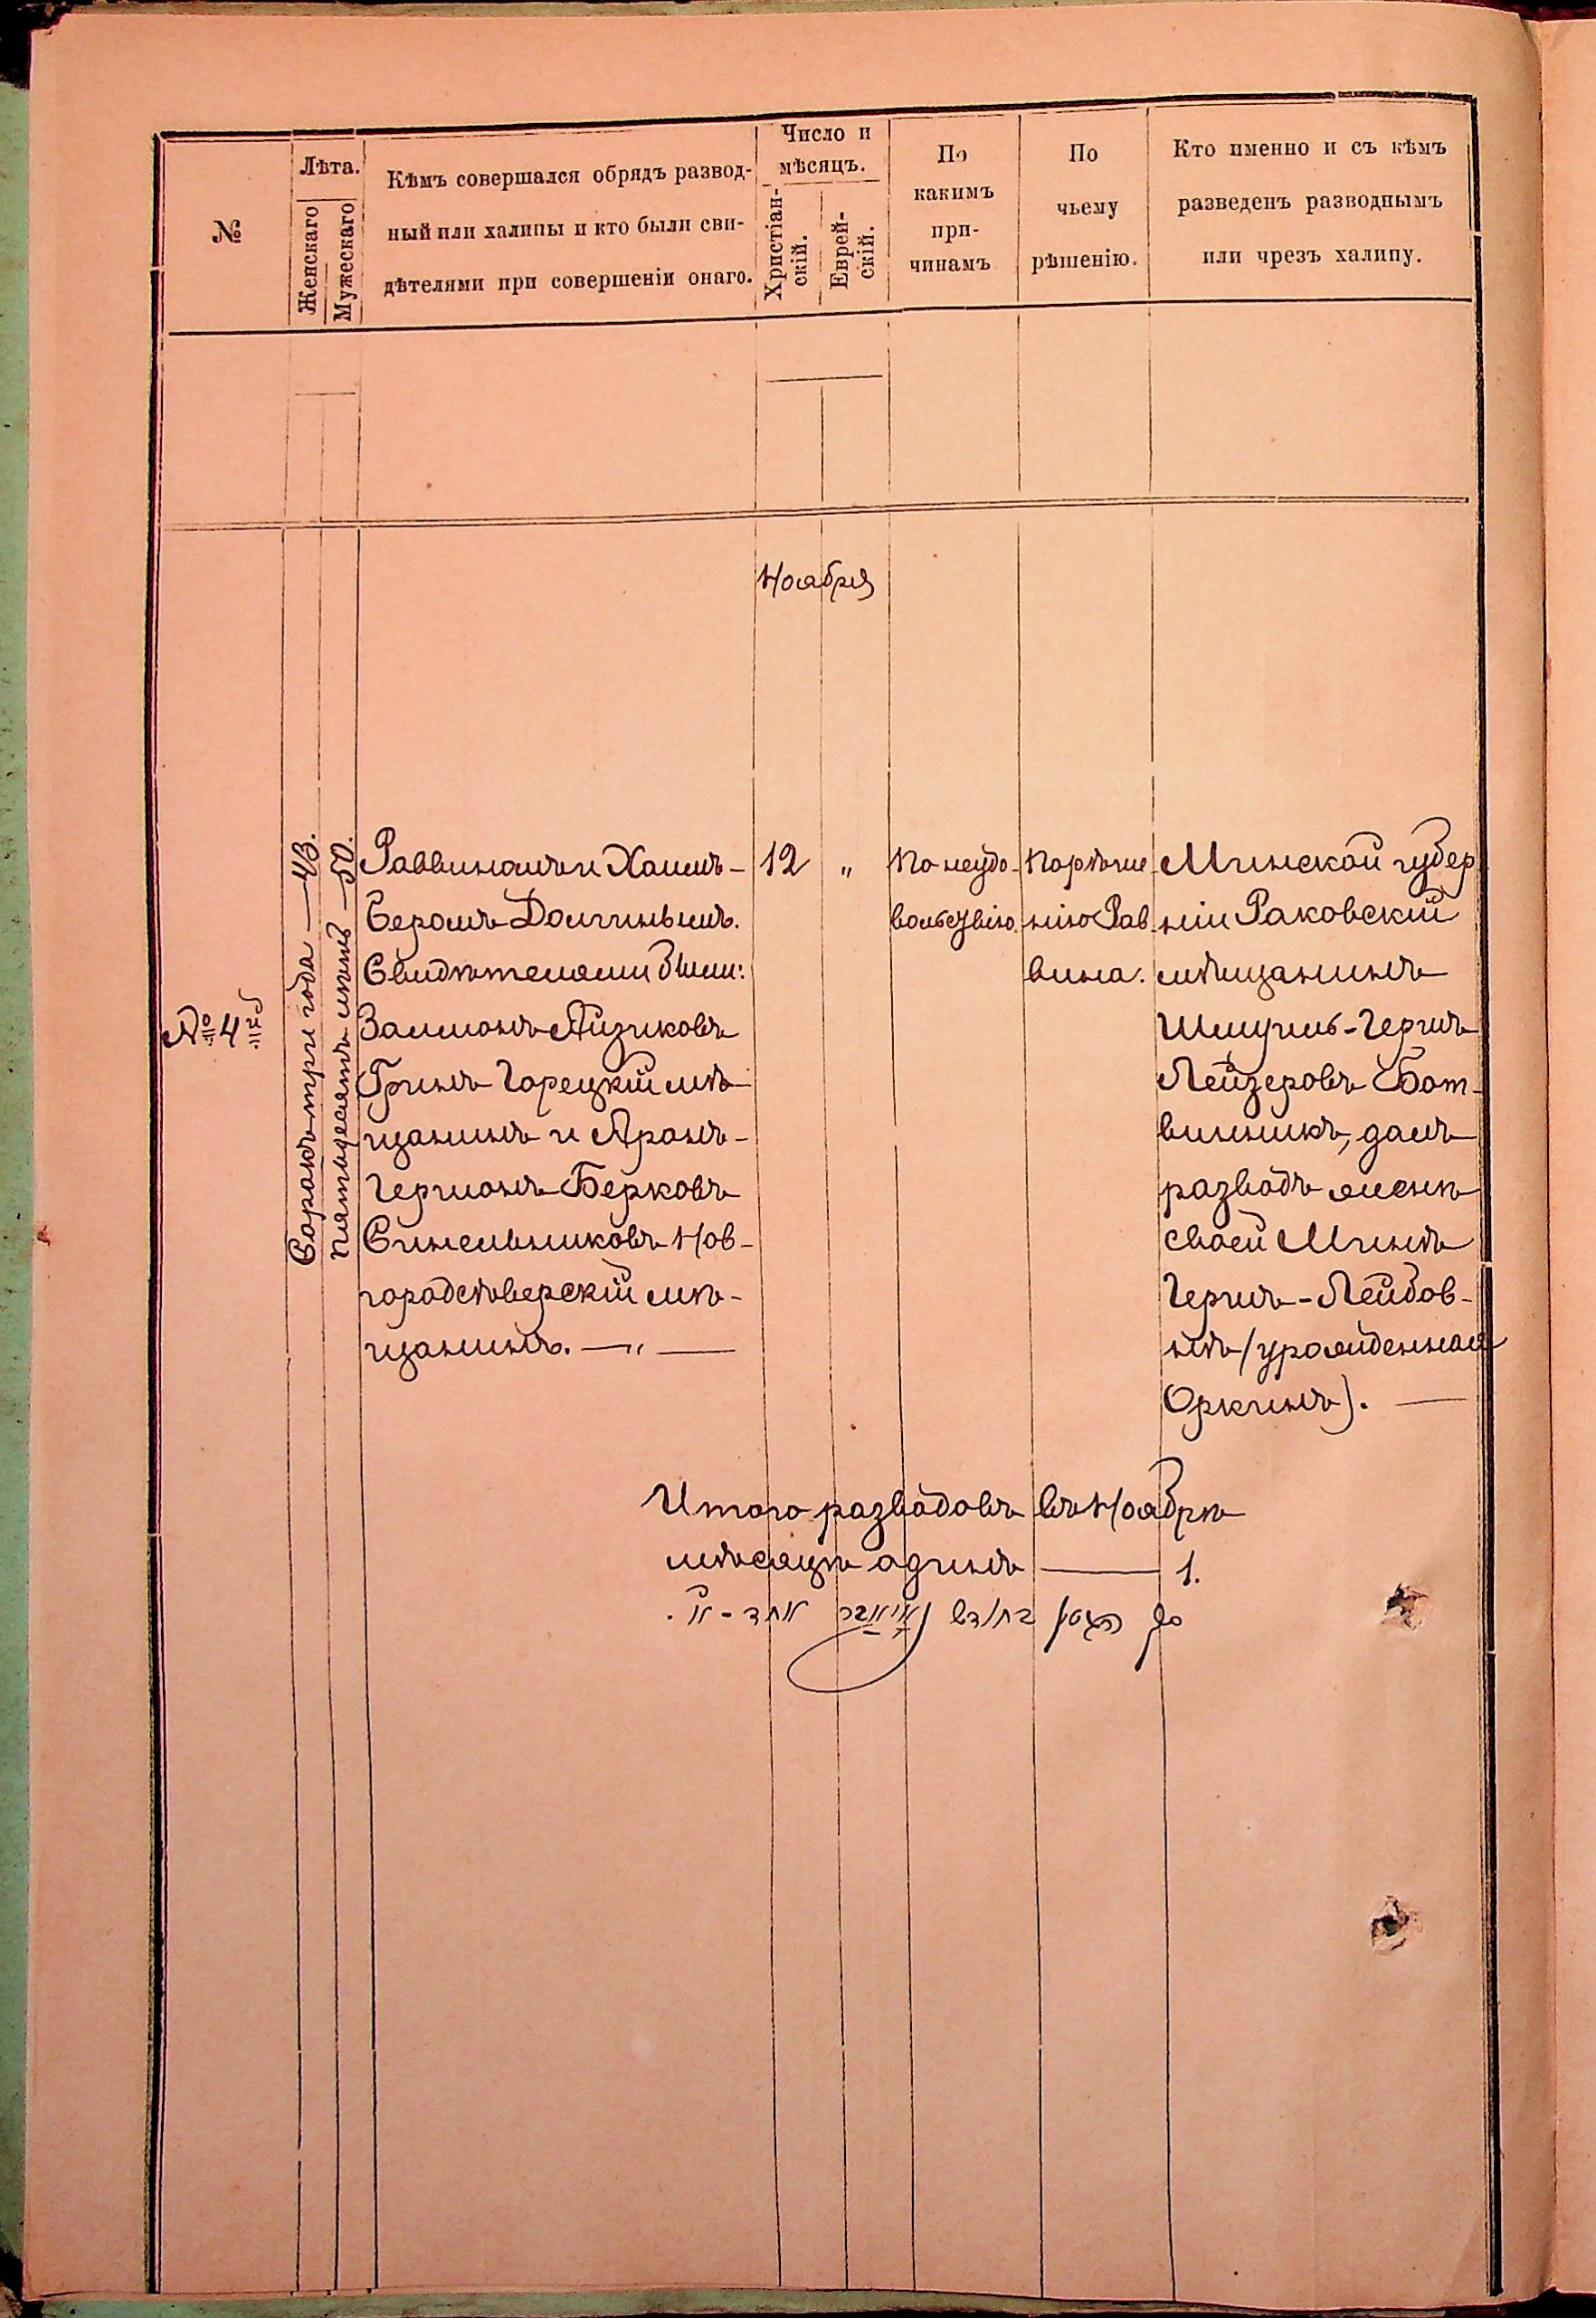 №
Лѣта.
Женскаго
Мужескаго
Кѣмъ совершался обрядъ развод-
ный или халицы и кто были сви-
дѣтелями при совершеніи онаго.
Число и
мѣсяцъ.
Христіан-
скій.
Еврей-
скій.
По
какимъ
при-
чинамъ
По
чьему
рѣшенію.
Кто именно и съ кѣмъ
разведенъ разводнымъ
или чрезъ халицу.
Ноября
№ 4й
Сорокъ три года — 43.
Пятьдесятъ лѣтъ — 50.
Раввиномъ Хаимъ-
Беромъ Долгинымъ.
Свидѣтелями были:
Залмонъ Айзиковъ
Гринъ Горецкій мѣ-
щанинъ и Аронъ-
Гершонъ Берковъ
Синельниковъ Нов-
городсѣверскій мѣ-
щанинъ. —"—
12 "
По неудо-
вольствію.
По рѣше-
нію Рав-
вина.
Минской губер
ніи Раковскій
мѣщанинъ
Шмуилъ-Гершъ
Лейзеровъ Бот-
винникъ, далъ
разводъ женѣ
своей Минѣ
Герш-Лейбов-
нѣ (урожденная
Оркинъ). —
Итого разводовъ въ Ноябрѣ
мѣсяцѣ одинъ — 1.